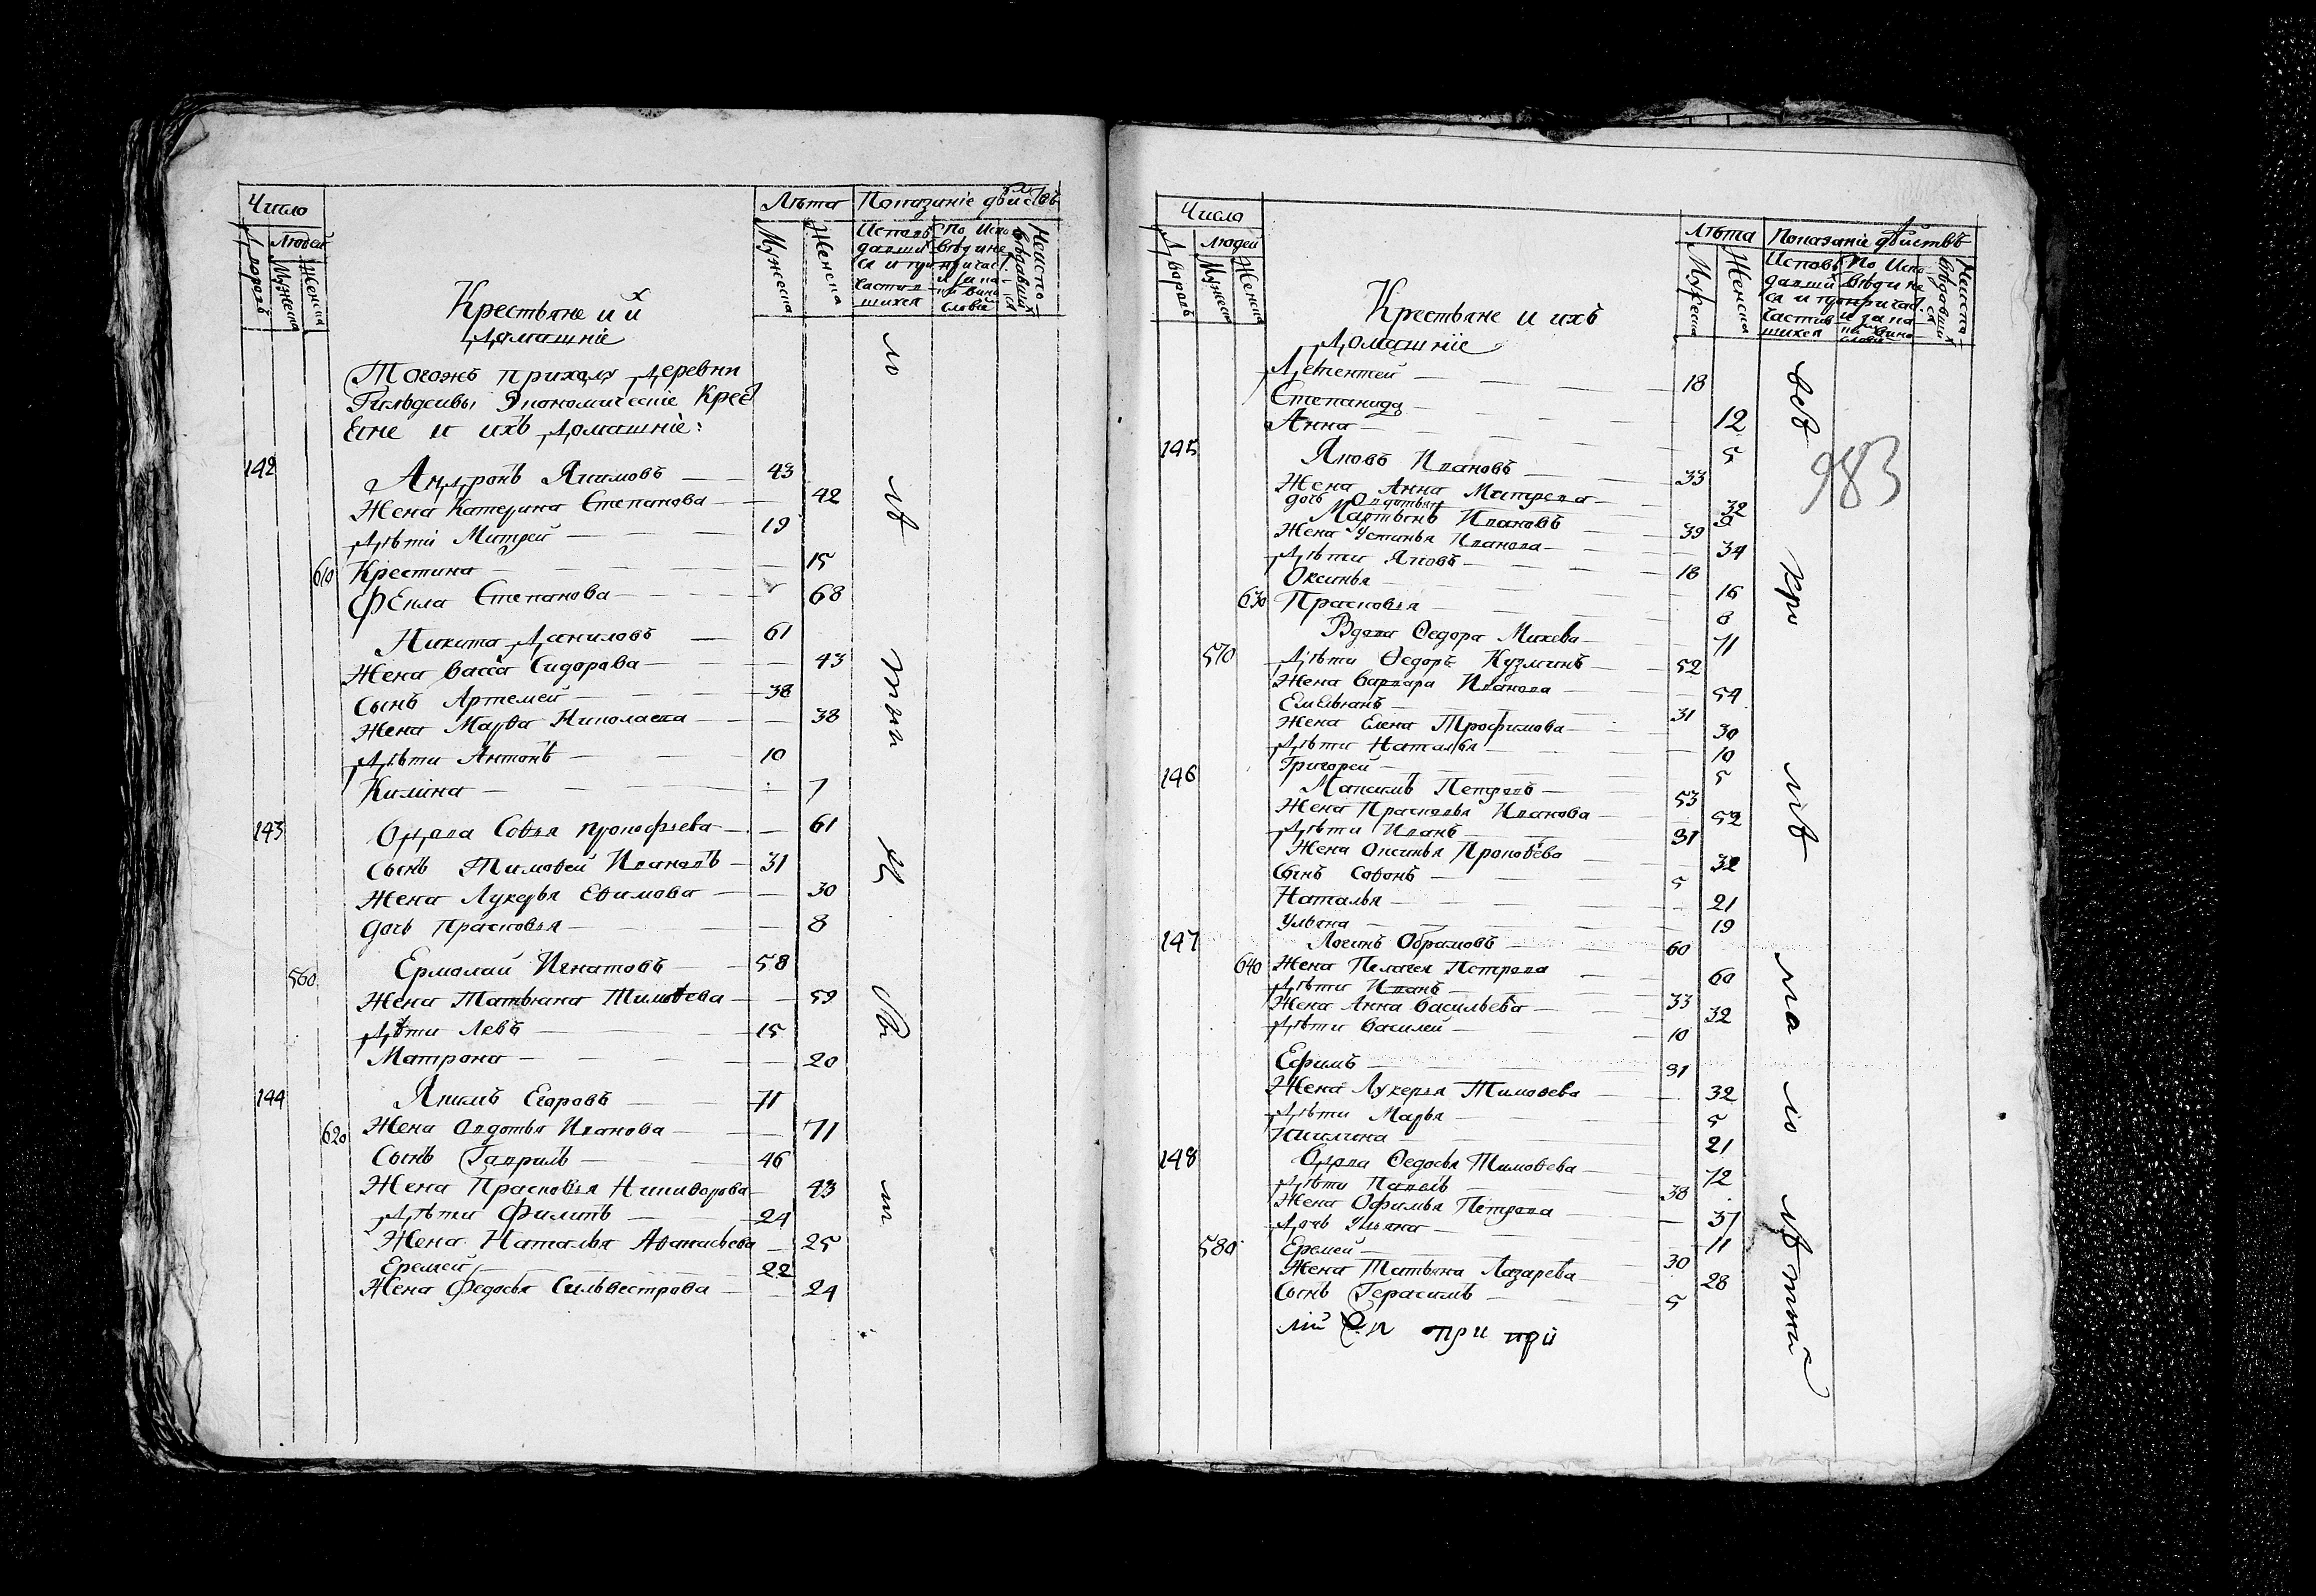 Число
Лѣта Показанiе двиствъ
Дворовъ
Людей
Мужеска
Женска
Мужеска
Женска
Исповѣ
давши
ся и при
частив
шихся
По Испо
вѣди не
причас.
и за ка
ки вино
словiе
Неиспо
вѣдавших
ся
Крестьяне и их
Домашнiе
Тогожъ приходу деревни
Экономическiе Крест
Ене и ихъ домашнiе:
142 Андронъ Якимовъ 43
Жена Катерина Степанова 42
Дѣти Митрей 19
610 Крестина 15
Фекла Степанова 68
Никита Даниловъ 61
Жена Васса Сидорова 43
Сынъ Артемей 38
Жена Марѳа Николаева 38
Дѣти Антонъ 10
Килина 7
143 Вдова Софья Прокофьева 61
Сынъ Тимоѳей Ивановъ 31
Жена Лукерья Еѳимова 30
дочь Прасковья 8
560 Ермолай Игнатовъ 58
Жена Татьяна Тимоѳева 59
Дѣти Левъ 15
Матрона 20
144 Якимъ Егоровъ 71
620 Жена Авдотья Иванова 71
Сынъ Гаврилъ 46
Жена Прасковья Никиѳорова 43
Дѣти Филипъ 24
Жена Наталья Аѳанасьева 25
Еремей 22
Жена Федосья Сильвестрова 24
Число
Лѣта Показанiе двиствъ
Дворовъ
Людей
Мужеска
Женска
Мужеска
Женска
Исповѣ
давши
ся и при
частив
шихся
По Испо
вѣди не
причас.
и за ка
ки вино
словiе
Неиспо
вѣдавших
ся
Крестьяне и ихъ
Домашнiе
Дементей 18
Степанида 12
Анна 5
145 Яковъ Ивановъ 33
Жена Анна Митрева 32
дочь Авдотья 9
Мартынъ Ивановъ 39
Жена Устинья Иванова 34
Дѣти Яковъ 18
Оксинья 16
630 Прасковья 8
Вдова Ѳедора Михева 71
570 Дѣти Ѳедоръ Кузминъ 52
Жена Варвара Иванова 54
Емельянъ 31
Жена Елена Трофимова 30
Дѣти Наталья 10
Григорей 5
146 Максимъ Петровъ 53
Жена Прасковья Иванова 52
Дѣти Иванъ 31
Жена Оксинья Прокоѳева 32
Сынъ Соѳонъ 5
Наталья 21
Ульяна 19
147 Логинъ Обрамовъ 60
640 Жена Пелагея Петрова 60
Дѣти Иванъ 33
Жена Анна Васильева 32
Дѣти Василей 10
Ефимъ 31
Жена Лукерья Тимоѳева 32
Дѣти Марья 5
Килина 21
148 Вдова Ѳедосья Тимоѳева 72
Дѣти Павелъ 38
Жена Офимья Петрова 37
Дочь Ульяна 11
580 Еремей 30
Жена Татьяна Лазарева 28
Сынъ Герасимъ 5
при при
983